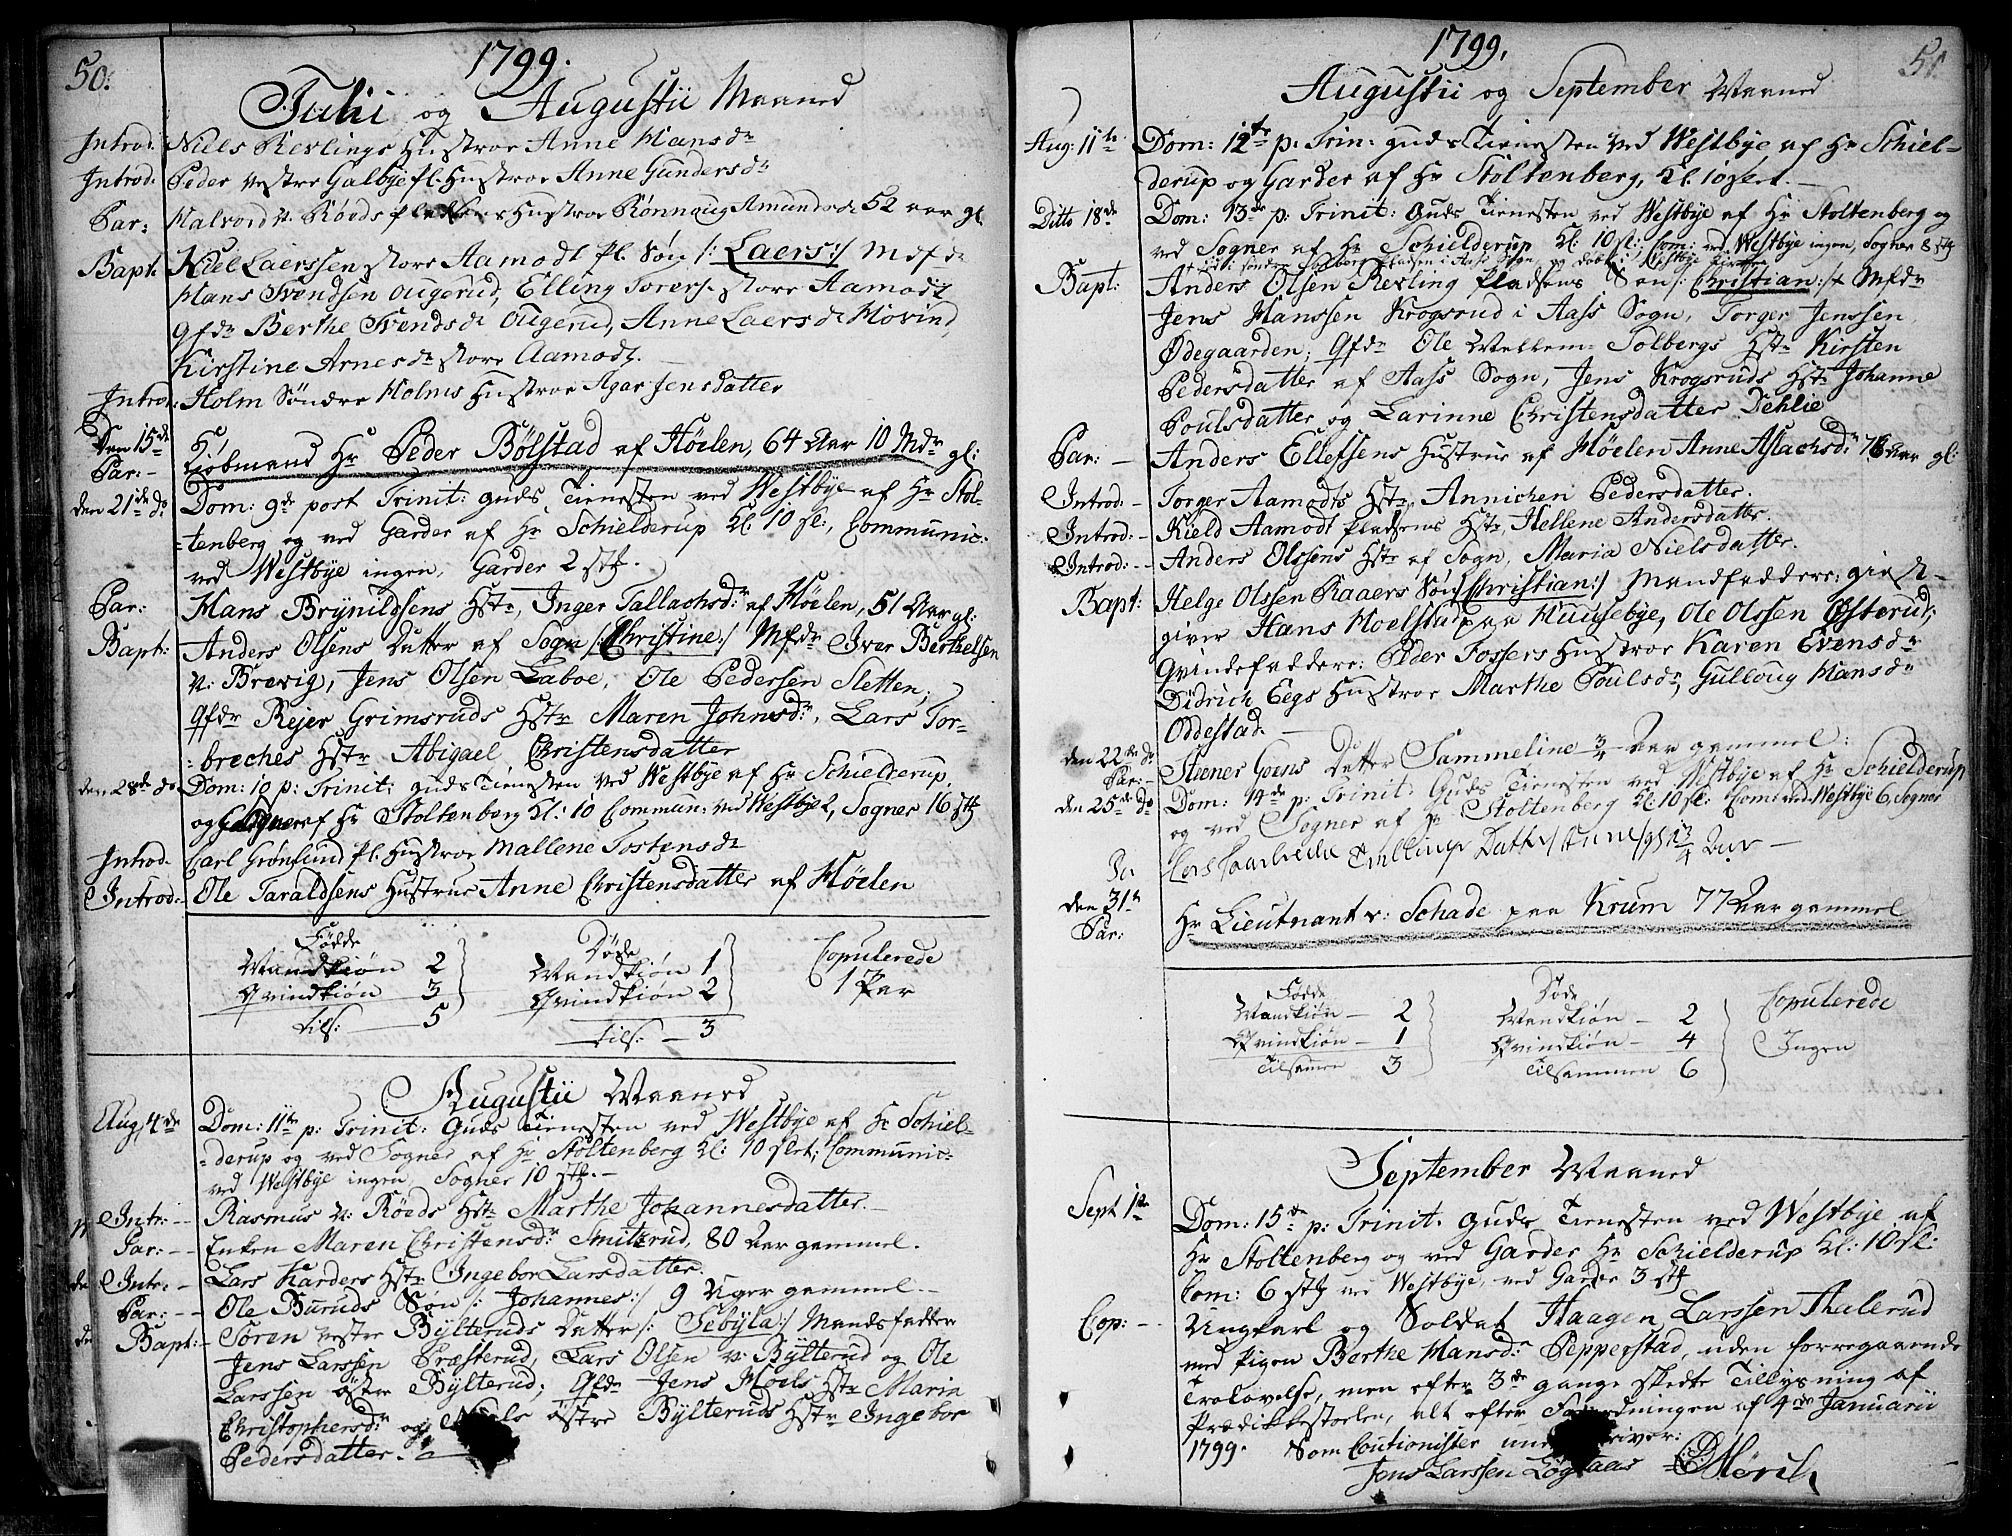 50.
1799.
Julii og Augustii Maaned
Introd. Niels Revlings Hustroe Anne Hansdr
Introd. Peder Vestre Galbye pl. Hustroe Anne Gundersdr
Par: Halvord v. Røeds Hustroe Rønnaug Amundsdr 52 aar gl
Bapt: Kiel Laerssen store Aamodt pl. Søn /: Laers :/ Mfdr
Hans Svendsen ougerud, Elling Torers. store Aamodt
Qfdr Berthe Svendsdr Ougerud, Anne Laersdr Hovind,
Kirstine Arnesdr store Aamodt.
Introd: Holm Søndre Holms Hustroe Agar Jensdatter
Den 15de
Par: - Kiøbmand Hr Peder Bølstad af Høelen, 64 Aar 10 Mdr gl:
den 21de do Dom: 9de post Trinit: Guds Tienesten ved Westbye af Hr Stol-
-tenberg og ved Garder af Hr Schielderup Kl. 10 sl., Communic:
ved Westbye ingen, Garder 2 stk.
Par: Hans Brynildsens Hstr, Inger Tallachsdr af Høelen, 51 Aar gl:
Bapt: Anders Olsens Datter af Sogn /: Christine :/ Mfdr Iver Berthelsen
v: Brevig, Jens Olsen Laboe, Ole Pedersen Sletten,
Qfdr Rejer Grimsruds Hstr Maren Johnsdr, Lars Tor-
-breches Hstr Abigael Christensdatter
den 28de do Dom: 10 p: Trinit: Guds Tienesten ved Westbye af Hr Schielderup
og af Hr Stoltenberg Kl: 10 Commun: ved Westbye 2, Sogner 16 stk
Introd. Carl Grønlund pl. Hustroe Mallene Tostensdr
Introd: Ole Taraldsens Hustrue Anne Christensdatter af Høelen
Fødde Døde Copulerede
Mandkiøn 2 Mandkiøn 1 1 Par
Qvindkiøn 3 Qvindkiøn 2
tils: 5 tils: 3
Augustii Maaned
Aug, 4de Dom: 11te p: Trinit: Guds Tienesten ved Westbye af Hr Schiel-
-derup og ved Sogner af Hr Stoltenberg Kl: 10 slet; Communic:
ved Westbye ingen, Sogner 10 stk. -
Intr: - - Rasmus v: Røeds Hstr Marthe Johannesdatter. -
Par: - - Enken Maren Christensdr Smitkrud, 80 Aar gammel.
Intr: - Lars Karders Hstr Ingebor Larsdatter.
Par: - - Ole Buruds Søn /: Johannes :/ 9 Uger gammel. -
Bapt: - Søren vestre Bylteruds Datter /: Sebyla :/ Mandsfadder
Jens Larssen Præsterud, Lars Olsen v: Bylterud og Ole
Larssen østre Bylterud; Qfdr Jens Hoels Hstr Maria
Christophersdr og østre Bylteruds Hstr Ingebor
Pedersdatter.
51.
1799.
Augustii og September Maaned
Aug: 11te Dom: 12te p: Trin: guds Tienesten ved Westbye af Hr Schiel-
derup og Garder af Hr Stoltenberg, Kl. 10 slet.
Ditto 18de Dom: 13de p: Trinit: Guds Tienesten ved Westbye af Hr Stoltenberg og
ved Sogner af Hr Schielderup Kl: 10 sl: Com: ved Westbye ingen, Sogner 8 stk
Bapt: Anders Olsen Revling Pladsens Søn /: Christian :/ Mfdr
Jens Hanssen Krogsrud i Aass Sogn, Torger Jenssen
Ødegaarden; Qfdr Ole Mellem: Solbergs Hstr Kirsten
Pedersdatter af Aass Sogn, Jens Krogsruds Hstr Johanne
Poulsdatter og Larinne Christensdatter Dehlie
Par: - Anders Ellefsens Hustrue af Høelen Anne Aslachsdr 76 Aar gl:
Introd: - Torger Aamodts Hstr, Annichen Pedersdatter.
Introd: - Kield Aamodt pladsens Hstr, Hellene Andersdatter.
Introd: - - Anders Olssens Hstr af Sogn, Maria Nielsdatter.
Bapt: Helge Olssen Raaers Søn /: Christian :/ Mandfaddere: giest-
giver Hans Hoelstad paa Huusebye, Ole Olssen Østerud;
Qvindefaddere: Peder Fossers Hustroe Karen Evensdr
Didrich Eegs Hustroe Marthe Poulsdr, Gulloug Hansdr
Oddestad. -
den 22de do
Par: - Steener Goens Datter Sammeline 3/4 Aar gammel:
den 25de do Dom: 14de p: Trinit: Guds Tienesten ved Westbye af Hr Schielderup
og ved Sogner af Hr Stoltenberg Kl: 10 sl: Com: ved Westbye 6, Sogner
Datter 1 3/4 Aar -
den 31te
Par: Hr Lieutnant v: Schade paa Krum 77 Aar gammel
Fødde Døde Copulerede
Mandkiøn - 2 Mandkiøn - 2 Ingen
Qvindkiøn - 1 Qvindkiøn - 4
Tilsamen 3 Tilsammen 6
September Maaned
Sept 1te Dom: 15de p: Trinit. Guds Tienesten ved Westbye af
Hr Stoltenberg og ved Garder Hr Schielderup Kl: 10 sl:
Com: 6 stk ved Westbye, ved Garder 3 stk
Cop: - - Ungkarl og Soldat Haagen Larssen Thulerud
med Pigen Berthe Hansdr Pepperstad, uden forregaaende
Trolovelse, men efter 3de gange skedte Tillysning af
Prædikkestoelen, alt efter Forordningen af 4de Januarii
1799. Som Coutionister underskriver:
Jens Larssen Løgstaas